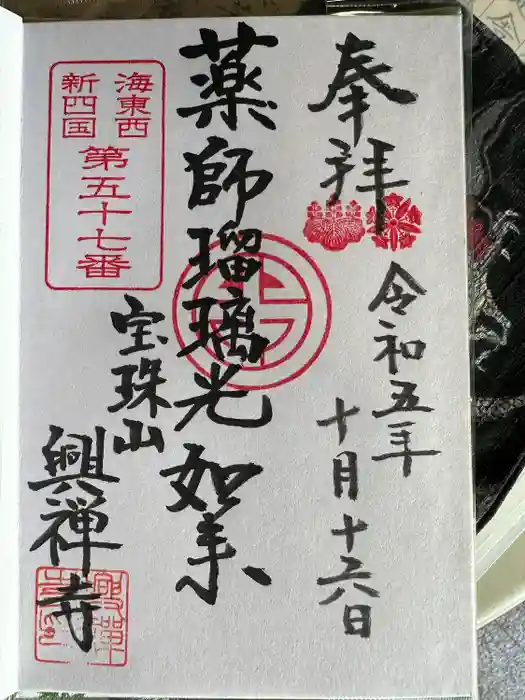 奉拝
令和五年
十月十六日
薬師瑠璃光如来
海東西
新四国
第五十七番
宝珠山
興禅寺